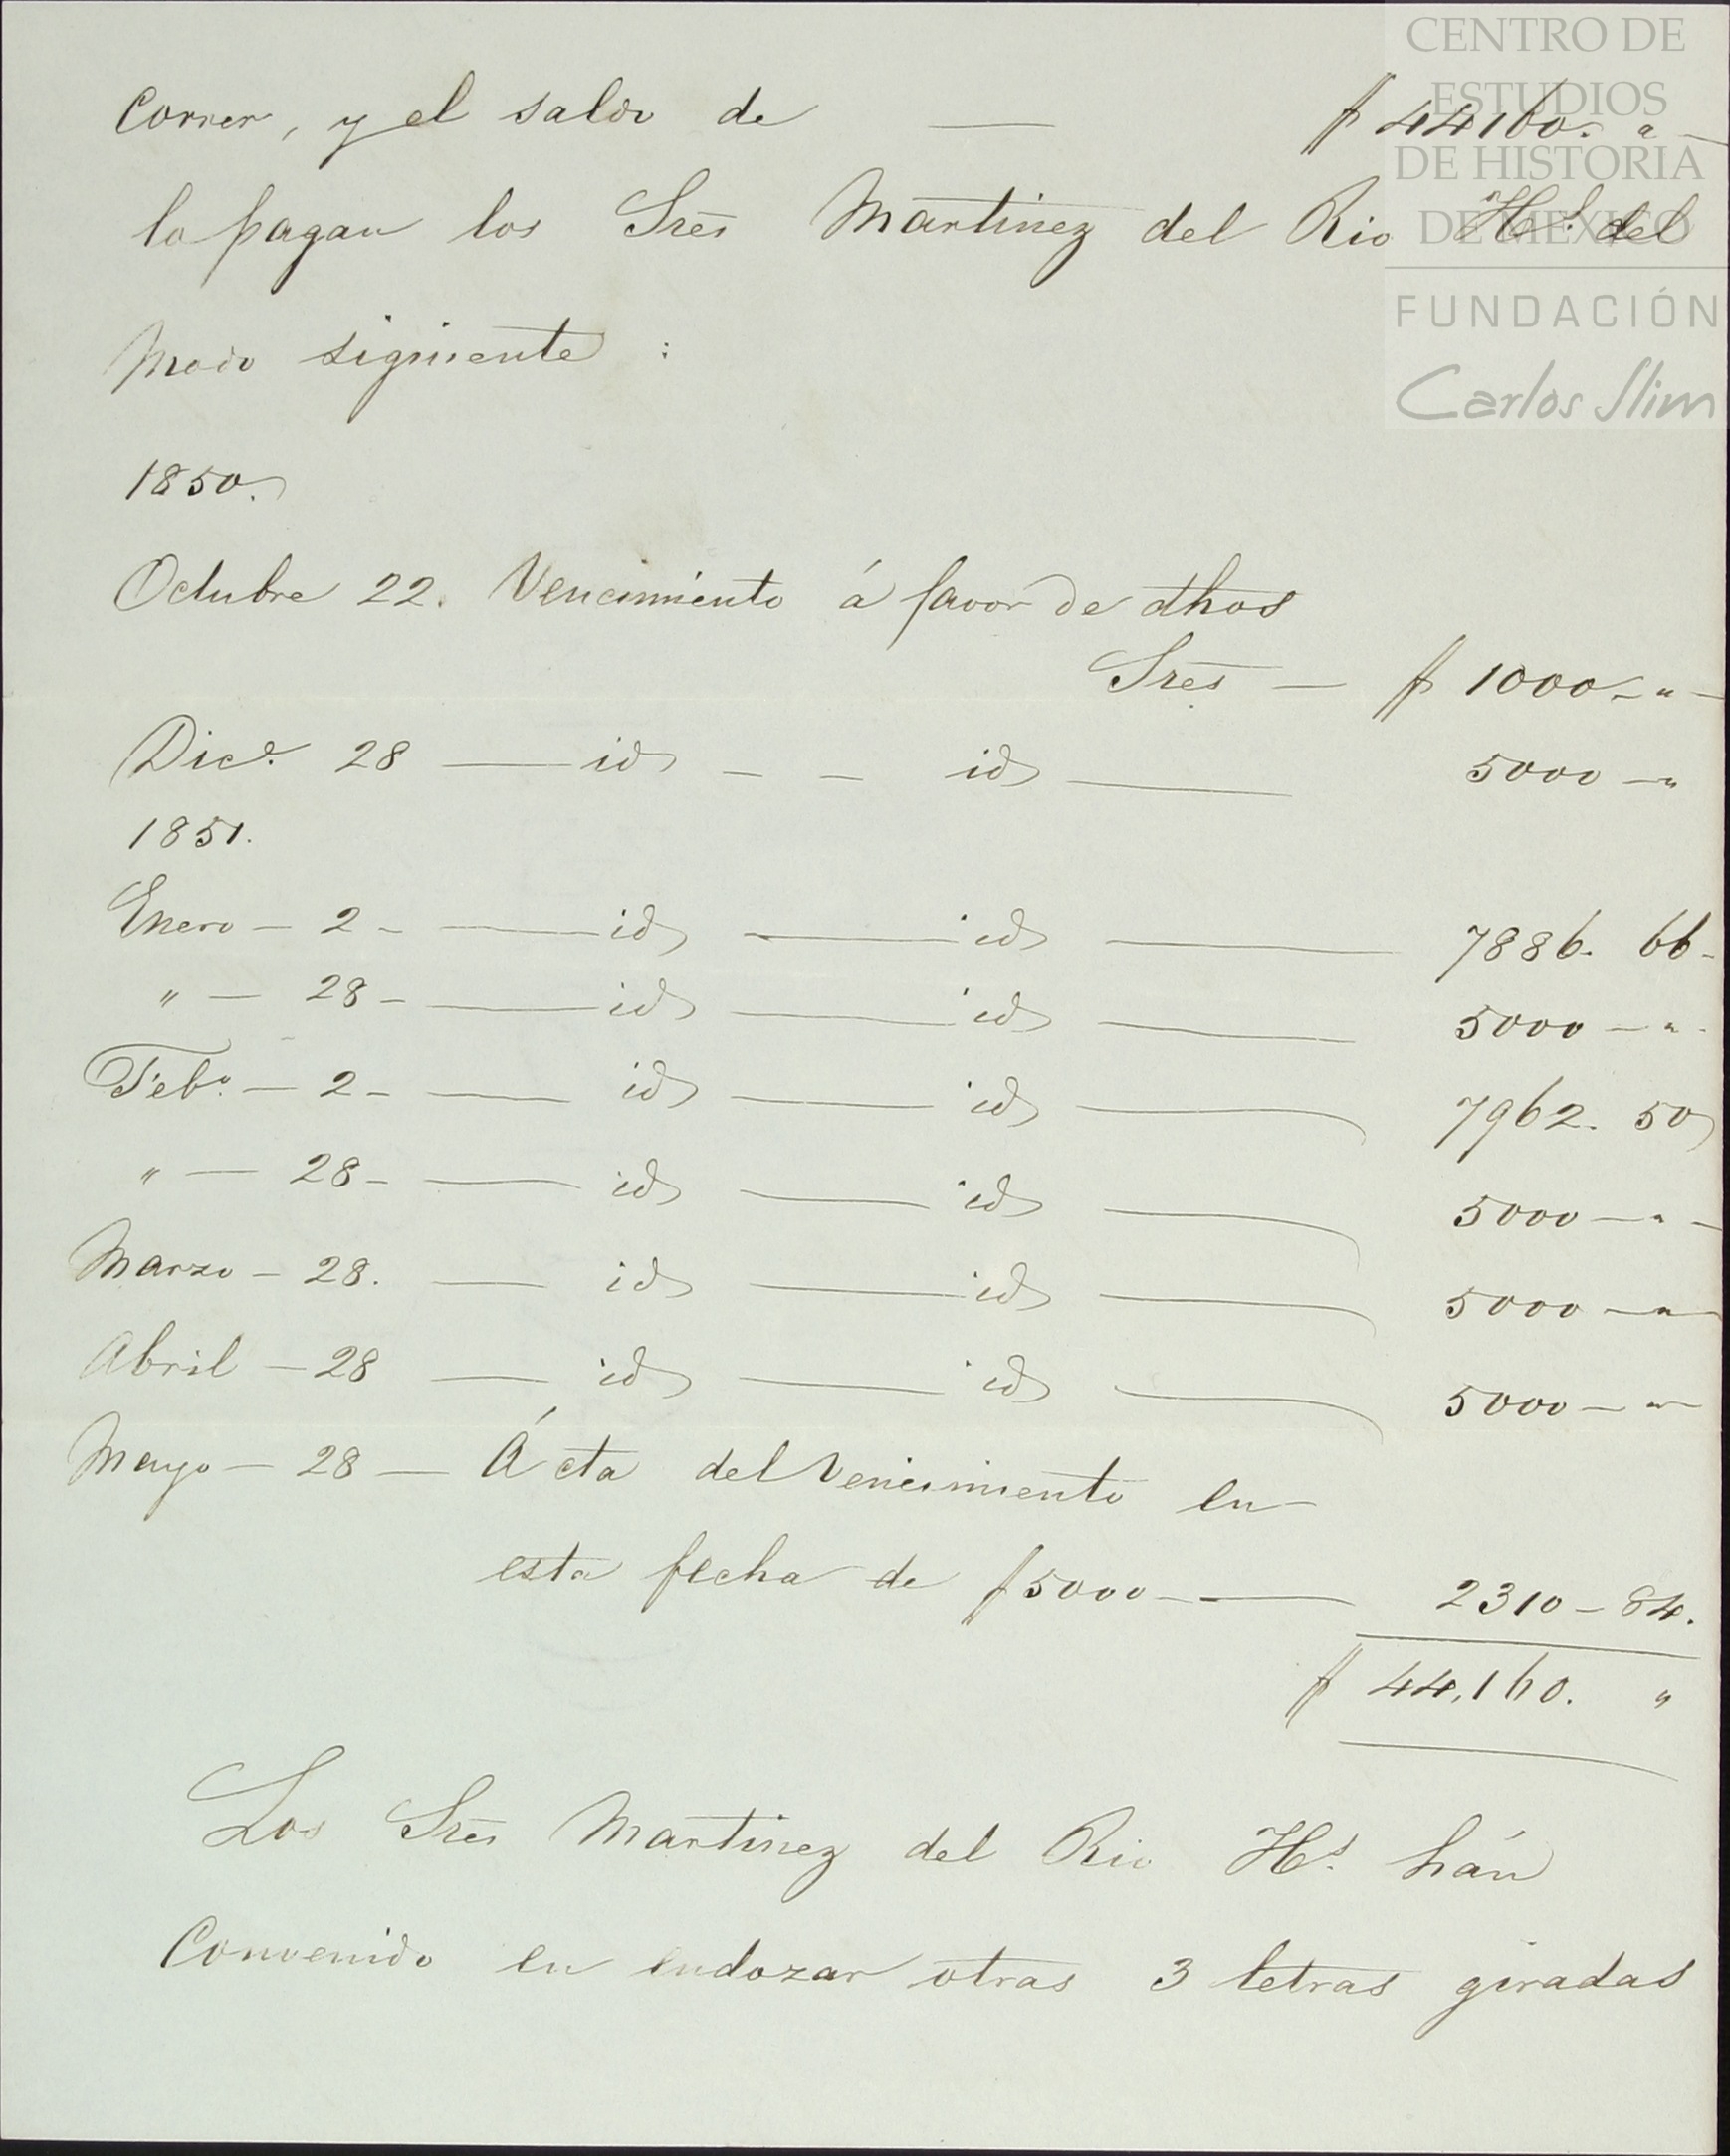 CENTRO DE
ESTUDIOS
DE HISTORIA
DE MEXICO
FUNDACIÓN
Carlos Slim
Correr, y el saldo de — $ 44160. "
lo pagan los Sres Martinez del Rio Hs. del
modo siguiente :
1850.
Octubre 22. Vencimiento á favor de dhos
Sres — $ 1000 - " -
Dice. 28 — id - - id — 5000 - "
1851.
Enero - 2 - — id — id — 7886. 66 -
" — 28 - — id — id — 5000 - " -
Febo. — 2 - — id — id — 7962. 50
" — 28 - — id — id — 5000 - " -
Marzo - 28. — id — id — 5000 - " -
Abril - 28 — id — id — 5000 - " -
Mayo - 28 — Á cta del vencimiento en
esta fecha de $ 5000 — 2310 - 84.
$ 44,160. "
Los Sres Martinez del Rio Hs. hán
Convenido en endozar otras 3 letras giradas